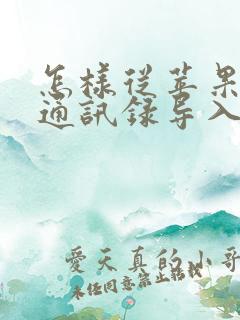 怎樣從苹果
通訊録导入
愛天真的小哥
未经同意禁止转载